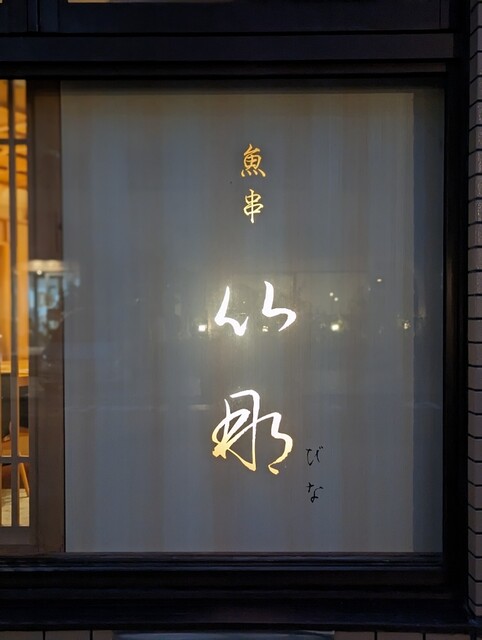 魚串
比那
びな